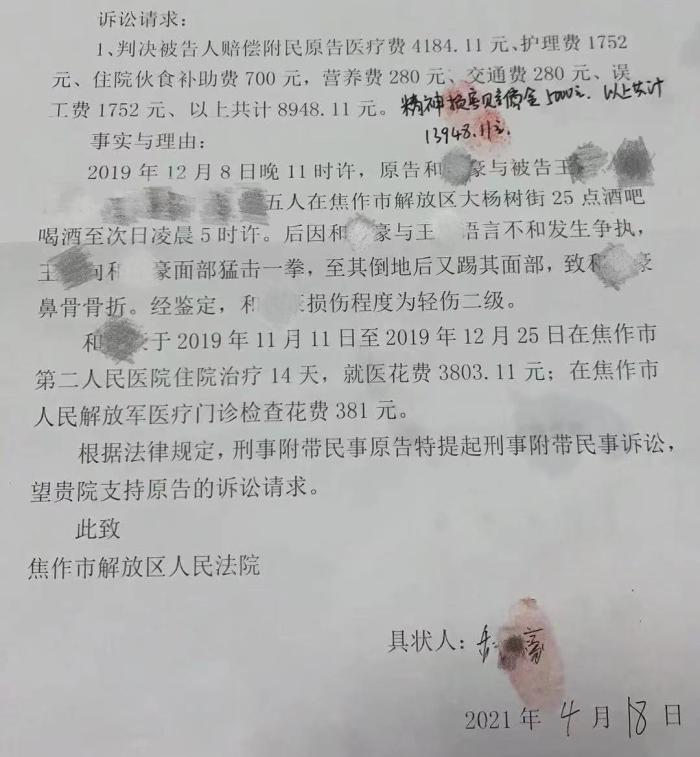 诉讼请求：
1、判决被告人赔偿附民原告医疗费 4184.11 元、护理费 1752
元、住院伙食补助费 700 元，营养费 280 元、交通费 280 元、误
工费 1752 元、以上共计 8948.11 元。精神损害赔偿金 5000元. 以上共计
13948.11元.
事实与理由：
2019 年 12 月 8 日晚 11 时许，原告和 豪与被告王
五人在焦作市解放区大杨树街 25 点酒吧
喝酒至次日凌晨 5 时许。后因和 豪与王 语言不和发生争执，
王 向和 豪面部猛击一拳，至其倒地后又踢其面部，致和 豪
鼻骨骨折。经鉴定，和 损伤程度为轻伤二级。
和 于 2019 年 11 月 11 日至 2019 年 12 月 25 日在焦作市
第二人民医院住院治疗 14 天，就医花费 3803.11 元；在焦作市
人民解放军医疗门诊检查花费 381 元。
根据法律规定，刑事附带民事原告特提起刑事附带民事诉讼，
望贵院支持原告的诉讼请求。
此致
焦作市解放区人民法院
具状人：和 豪
2021 年 4 月 18 日